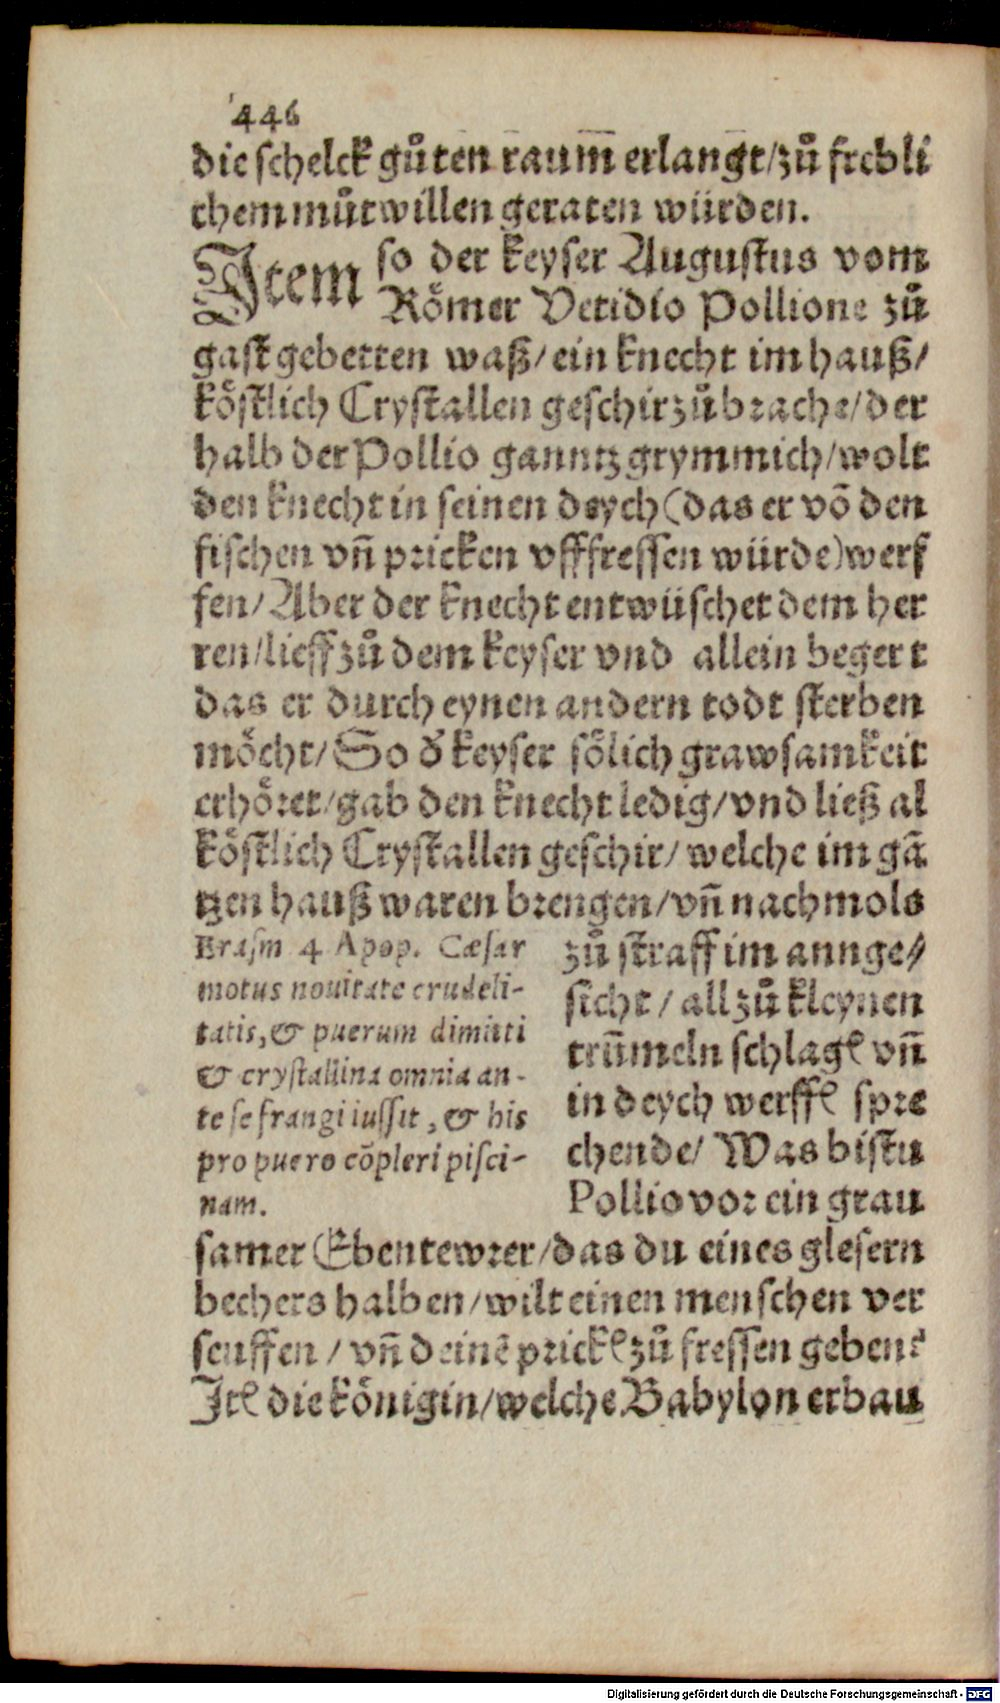 446
die schelck gůten raum̅ erlangt/zů frebli
chem můtwillen geraten würden.
Item so der keyser Augustus vom
Römer Vetidio Pollione zů
gast gebetten waß/ein knecht im hauß/
köstlich Crystallen geschir zůbrache/der
halb der Pollio ganntz grymmich/wolt
den knecht in seinen deych (das er võ den
fischen vñ pricken vfffressen würde) werf
fen/Aber der knecht entwüschet dem her
ren/lieff zů dem keyser vnd allein begert
das er durch eynen andern todt sterben
möcht/So d̓ keyser sölich grawsamkeit
erhöret/gab den knecht ledig/vnd ließ al
köstlich Crystallen geschir/welche im gā
tzen hauß waren brengen/vñ nachmols
zů straff im annge⸗
sicht/all zů kleynen
trūmeln schlagē vñ
in deych werffē spre
chende/Was bistu
Pollio vor ein grau
Erasm 4 Apop. Cæsar
motus nouitate crudeli-
tatis, & puerum dimitti
& crystallina omnia an-
te se frangi iussit, & his
pro puero cōpleri pisci-
nam.
samer Ebentewrer/das du eines glesern
bechers halben/wilt einen menschen ver
seuffen/vñ deinē prickē zů fressen geben?
Itē die königin/welche Babylon erbau
Digitalisierung gefördert durch die Deutsche Forschungsgemeinschaft - DFG